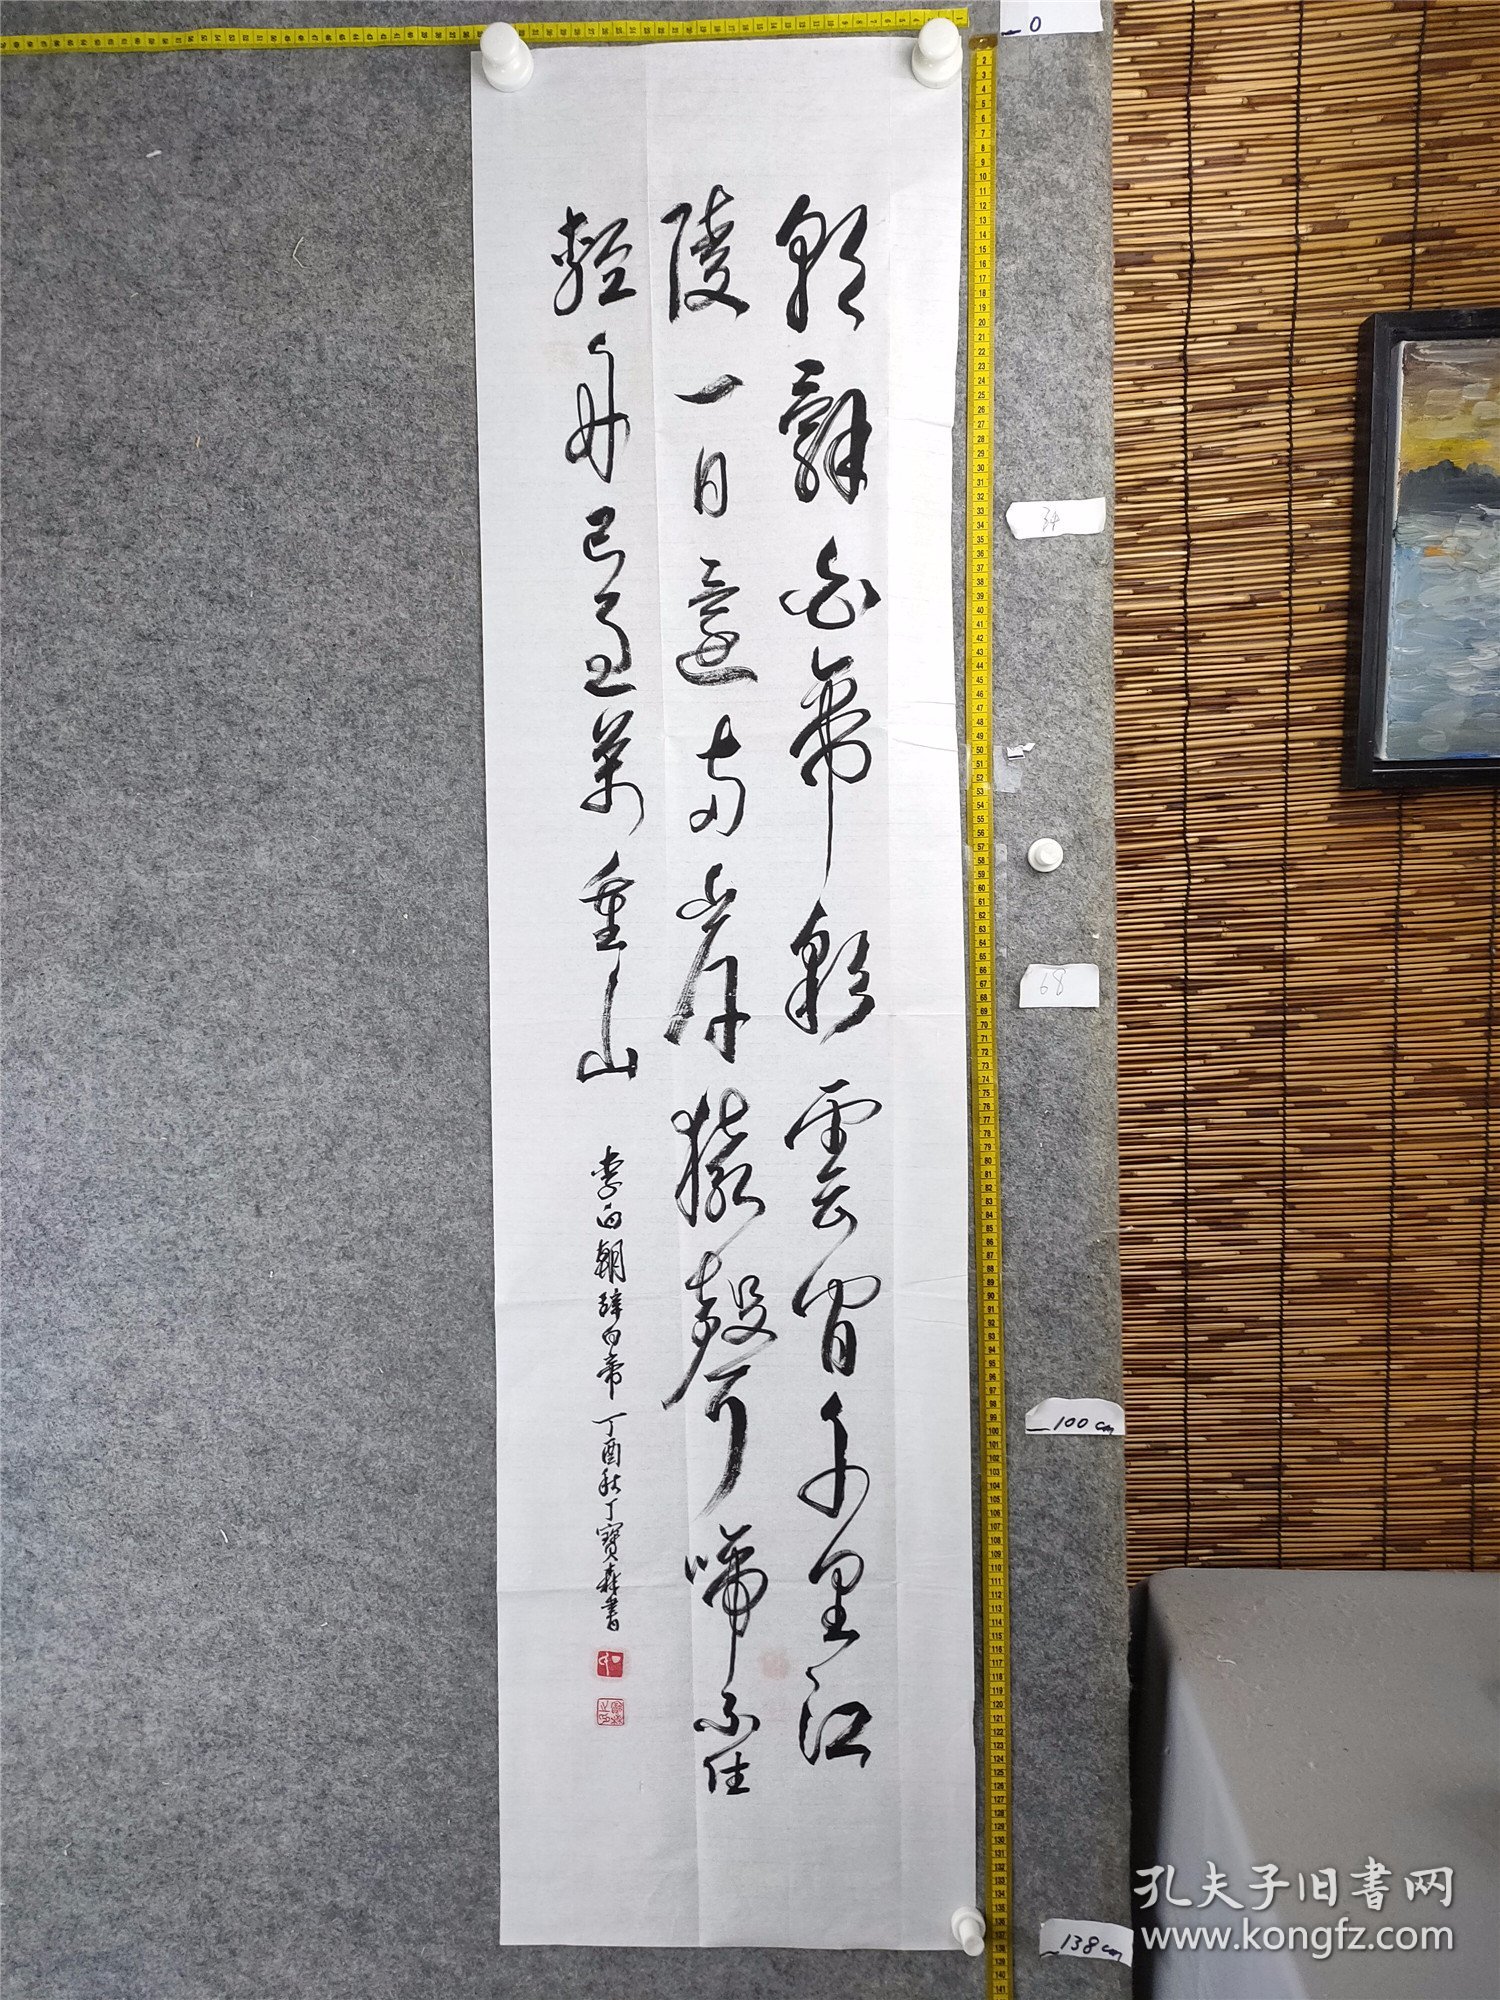 朝辭白帝彩雲間千里江
陵一日還兩岸猿聲啼不住
輕舟已過萬重山
李白朝辭白帝 丁酉秋丁寶森書
0
34
68
100cm
138cm
孔夫子旧书网
www.kongfz.com